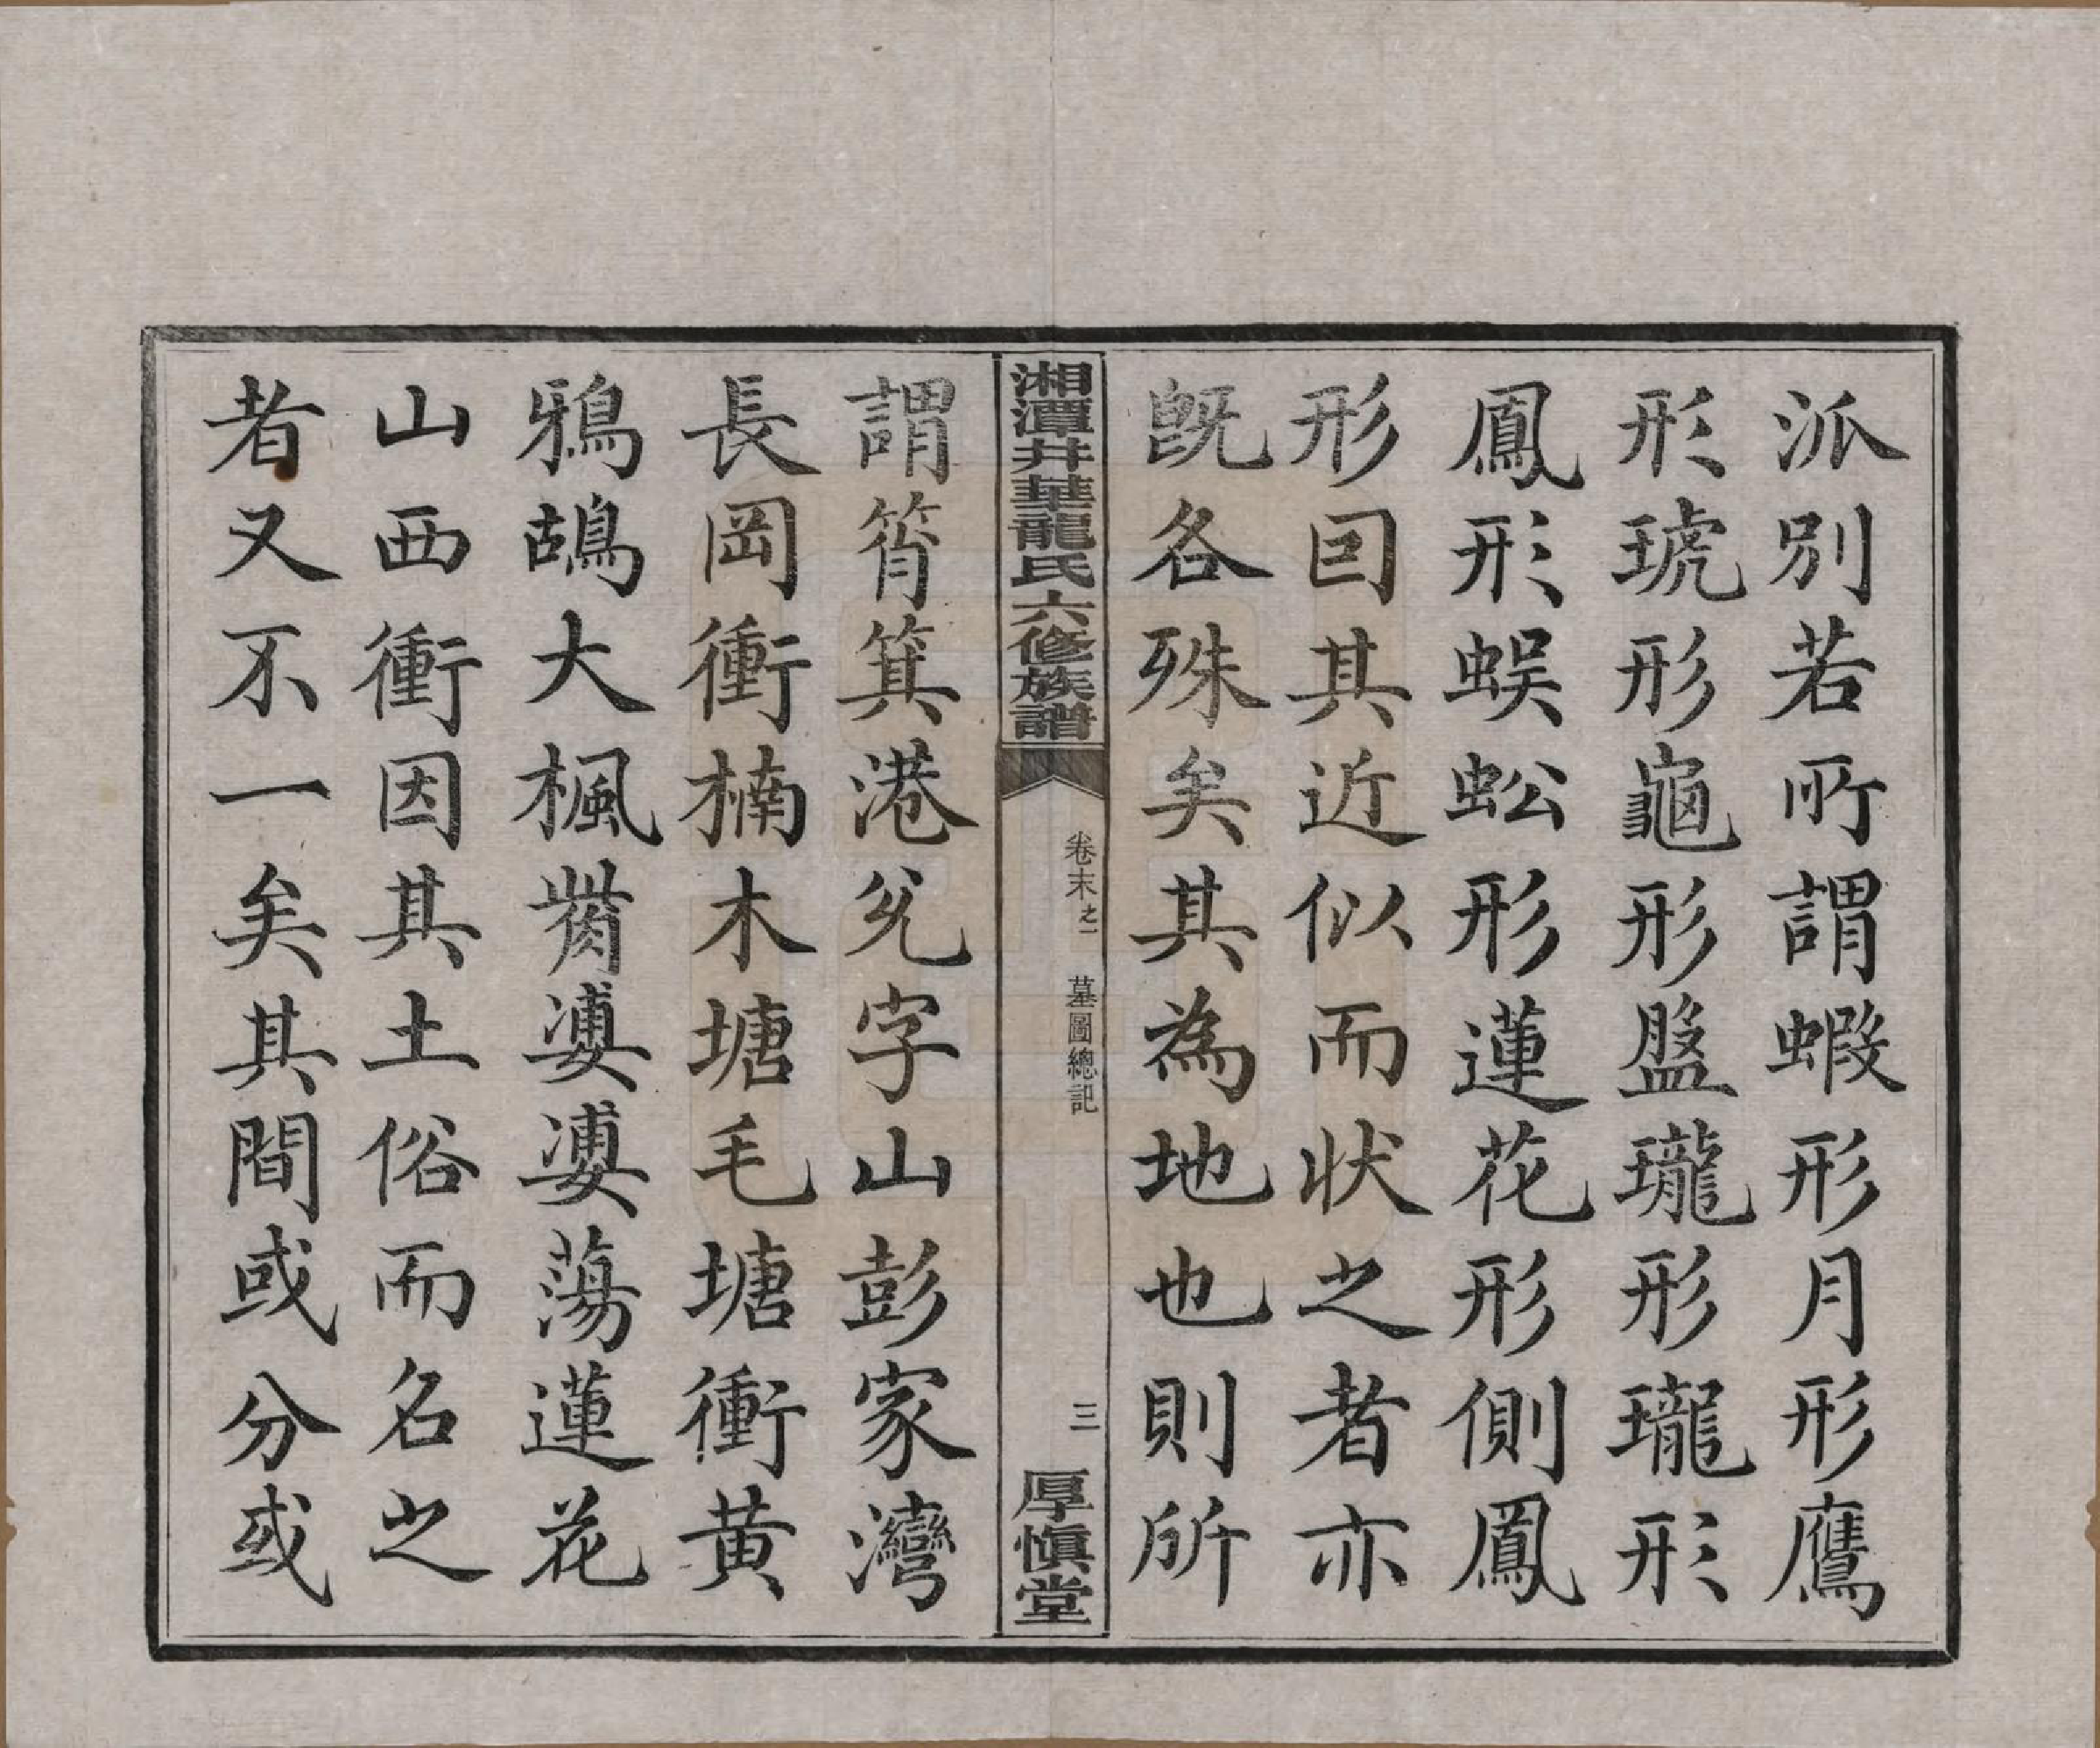 派別若所謂蝦形月形鷹
形琥形龜形盤瓏形瓏形
鳳形蜈蚣形蓮花形側鳳
形因其近似而狀之者亦
旣各殊矣其為地也則所
湘潭井華龍氏六修族譜
卷末之一 墓圖總記
三
厚慎堂
謂筲箕港兊字山彭家灣
長岡衝楠木塘毛塘衝黃
鴉鴣大楓嘴婆婆蕩蓮花
山西衝因其土俗而名之
者又不一矣其間或分或